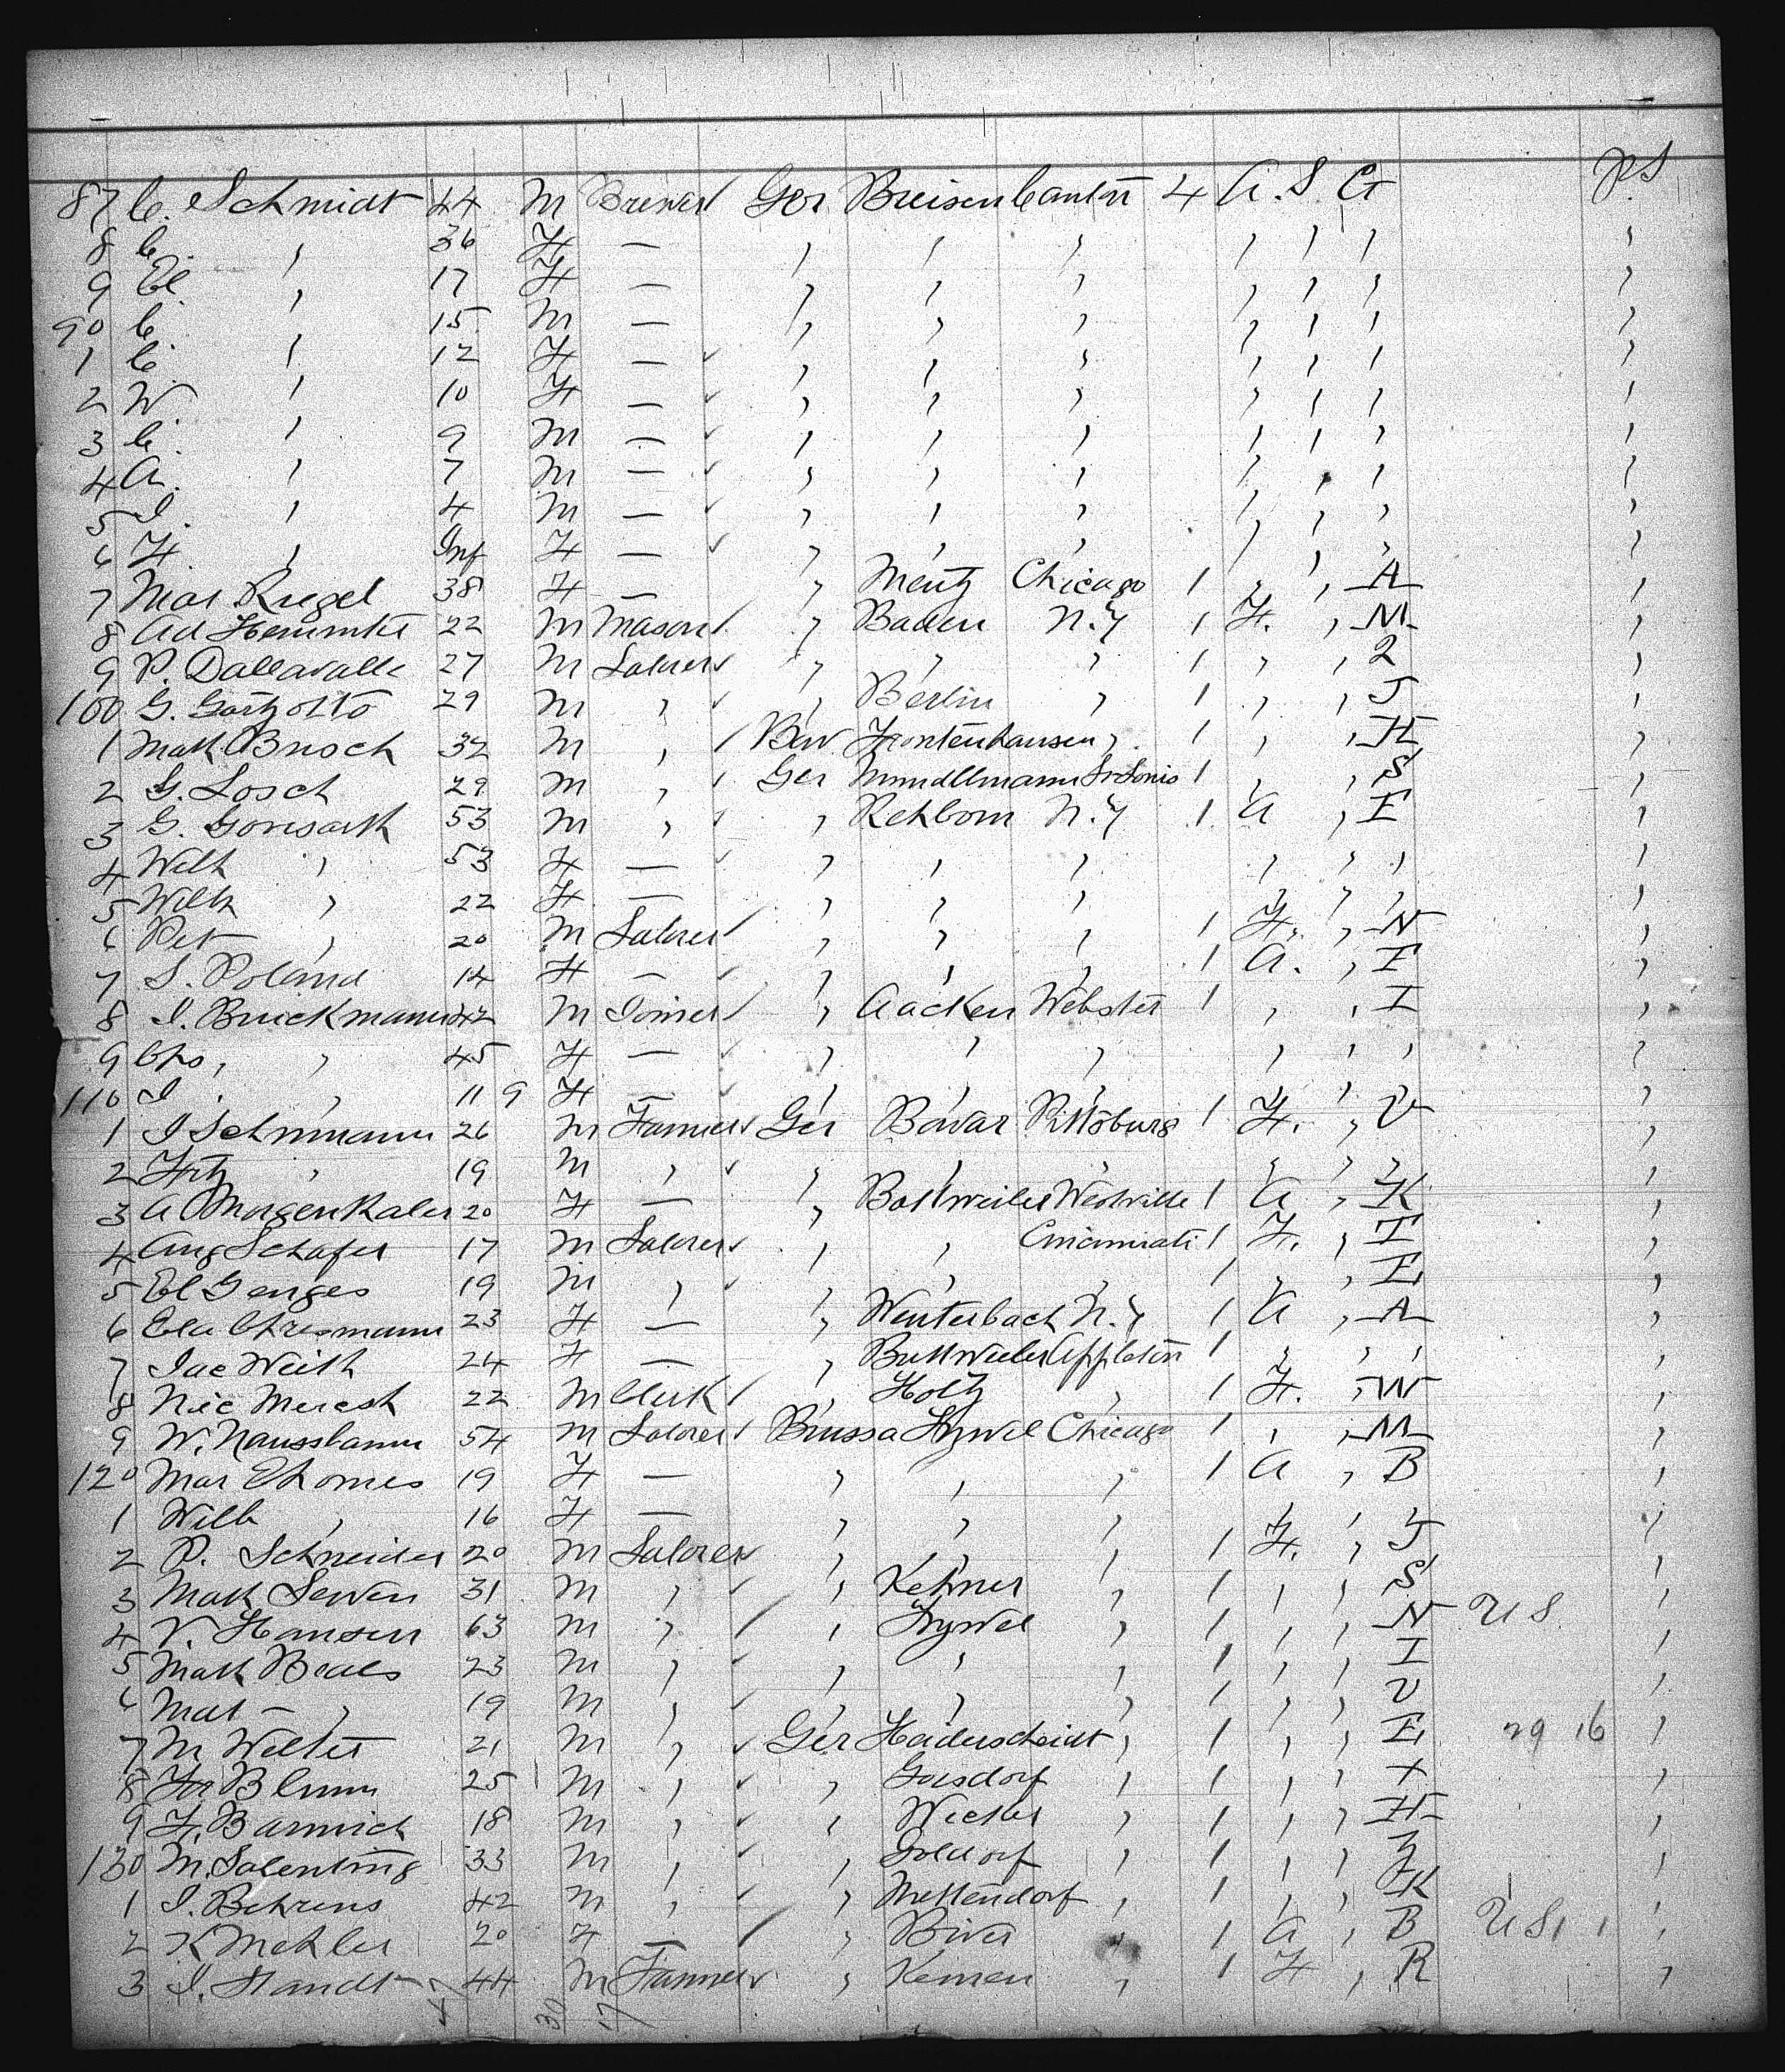 P.S
87 C. Schmidt 44 M Brewer Ger Breisen Canton 4 A. S. G
8 C. , 36 F — , , , , , , ,
9 El , 17 F — , , , , , , ,
90 C. , 15 M — , , , , , , ,
1 C. , 12 F — , , , , , , ,
2 W. , 10 F — , , , , , , ,
3 C. , 9 M — , , , , , , ,
4 A. , 7 M — , , , , , , ,
5 I. , 4 M — , , , , , , ,
6 F , Inf F — , , , , , , ,
7 Mar Riegel 38 F — , Mentz Chicago 1 , , A ,
8 Ad 22 M Mason , Baden N.Y 1 F. , M ,
9 P. Dallavalle 27 M Laborer , , , 1 , , 2 ,
100 G. 29 M , , Berlin , 1 , , J ,
1 Math Busch 32 M , Bav Frontenhausen , 1 , , H ,
2 G. Losch 29 M , Ger St Louis 1 , , S ,
3 G. 53 M , , Rehborn N.Y 1 A , E ,
4 Wilh , 53 F — , , , , , , ,
5 Wilh , 22 F — , , , , , , ,
6 Pet , 20 M Laborer , , , 1 F. , N ,
7 S. Poland 14 F — , , , 1 A. , F ,
8 I. Brickmann 42 M Joiner , Aacken Webster 1 , , I ,
9 Chs. , 45 F — , , , , , , ,
110 I , 11 9 F — , , , , , , ,
1 I Schumann 26 M Farmer Ger Bavar Pittsburg 1 F. , V ,
2 Fritz , 19 M , , , , , , , ,
3 A Morgenthaler 20 F — , Bottweiler Westville 1 A , K ,
4 Aug Schafer 17 M Laborer , , Cincinnati 1 F. , T ,
5 El Genges 19 M , , , , 1 , , E ,
6 Chresmann 23 F — , Wenterbach N.Y 1 A , A ,
7 Jac Weith 24 F — , Buttweiler Appleton 1 , , , ,
8 Nic Mersch 22 M Clerk , Holtz , 1 F. , W ,
9 W. Naussbaum 54 M Laborer Prussa Chicago 1 , , M ,
120 Mar Thomes 19 F — , , , 1 A , B ,
1 Wilh , 16 F — , , , , , , ,
2 P. Schneider 20 M Laborer , , , 1 F. , J ,
3 Math Lewen 31 M , , Kehner , 1 , , S ,
4 V. Hansen 63 M , , , 1 , , N U S ,
5 Math Beals 23 M , , , , 1 , , I ,
6 Mat — , 19 M , , , , 1 , , V ,
7 M Welter 21 M , Ger Heiderscheidt , 1 , , E 29 16 ,
8 Fr Blum 25 M , , Gorsdorf , 1 , , X ,
9 F. Barwick 18 M , , Wecker , 1 , , H ,
130 M. Salenting 33 M , , , 1 , , Z ,
1 I. Behrens 42 M , , Mettendorf , 1 , , K ,
2 K Mehler 20 F — , Biver , 1 A , B U S 1 1 ,
3 I. Standt 44 M Farmer , Kemen , 1 F , R ,
47 30 17